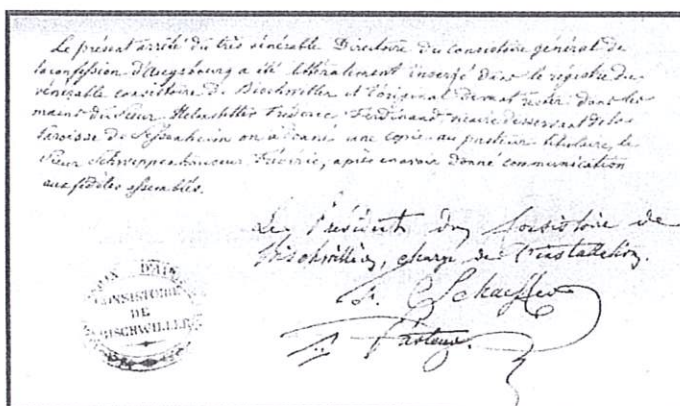 Le présent arrêté du très vénérable Directoire du consistoire général de
la confession d'Augsbourg a été littéralement inséré dans le régistre du
vénérable consistoire de Bischwiller et l'original devant rester dans les
mains du Sieur Frédéric Ferdinand vicaire desservant de la
Paroisse de Sessenheim on a donné une copie au pasteur titulaire, le
Sieur Schweppenhäuser Frédéric, après en avoir donné communication
aux fidèles assemblés.
Le Président du Consistoire de
Bischwiller, chargé de l'installation.
Schaeffer
Pasteur.
CONSISTOIRE
DE
BISCHWILLER